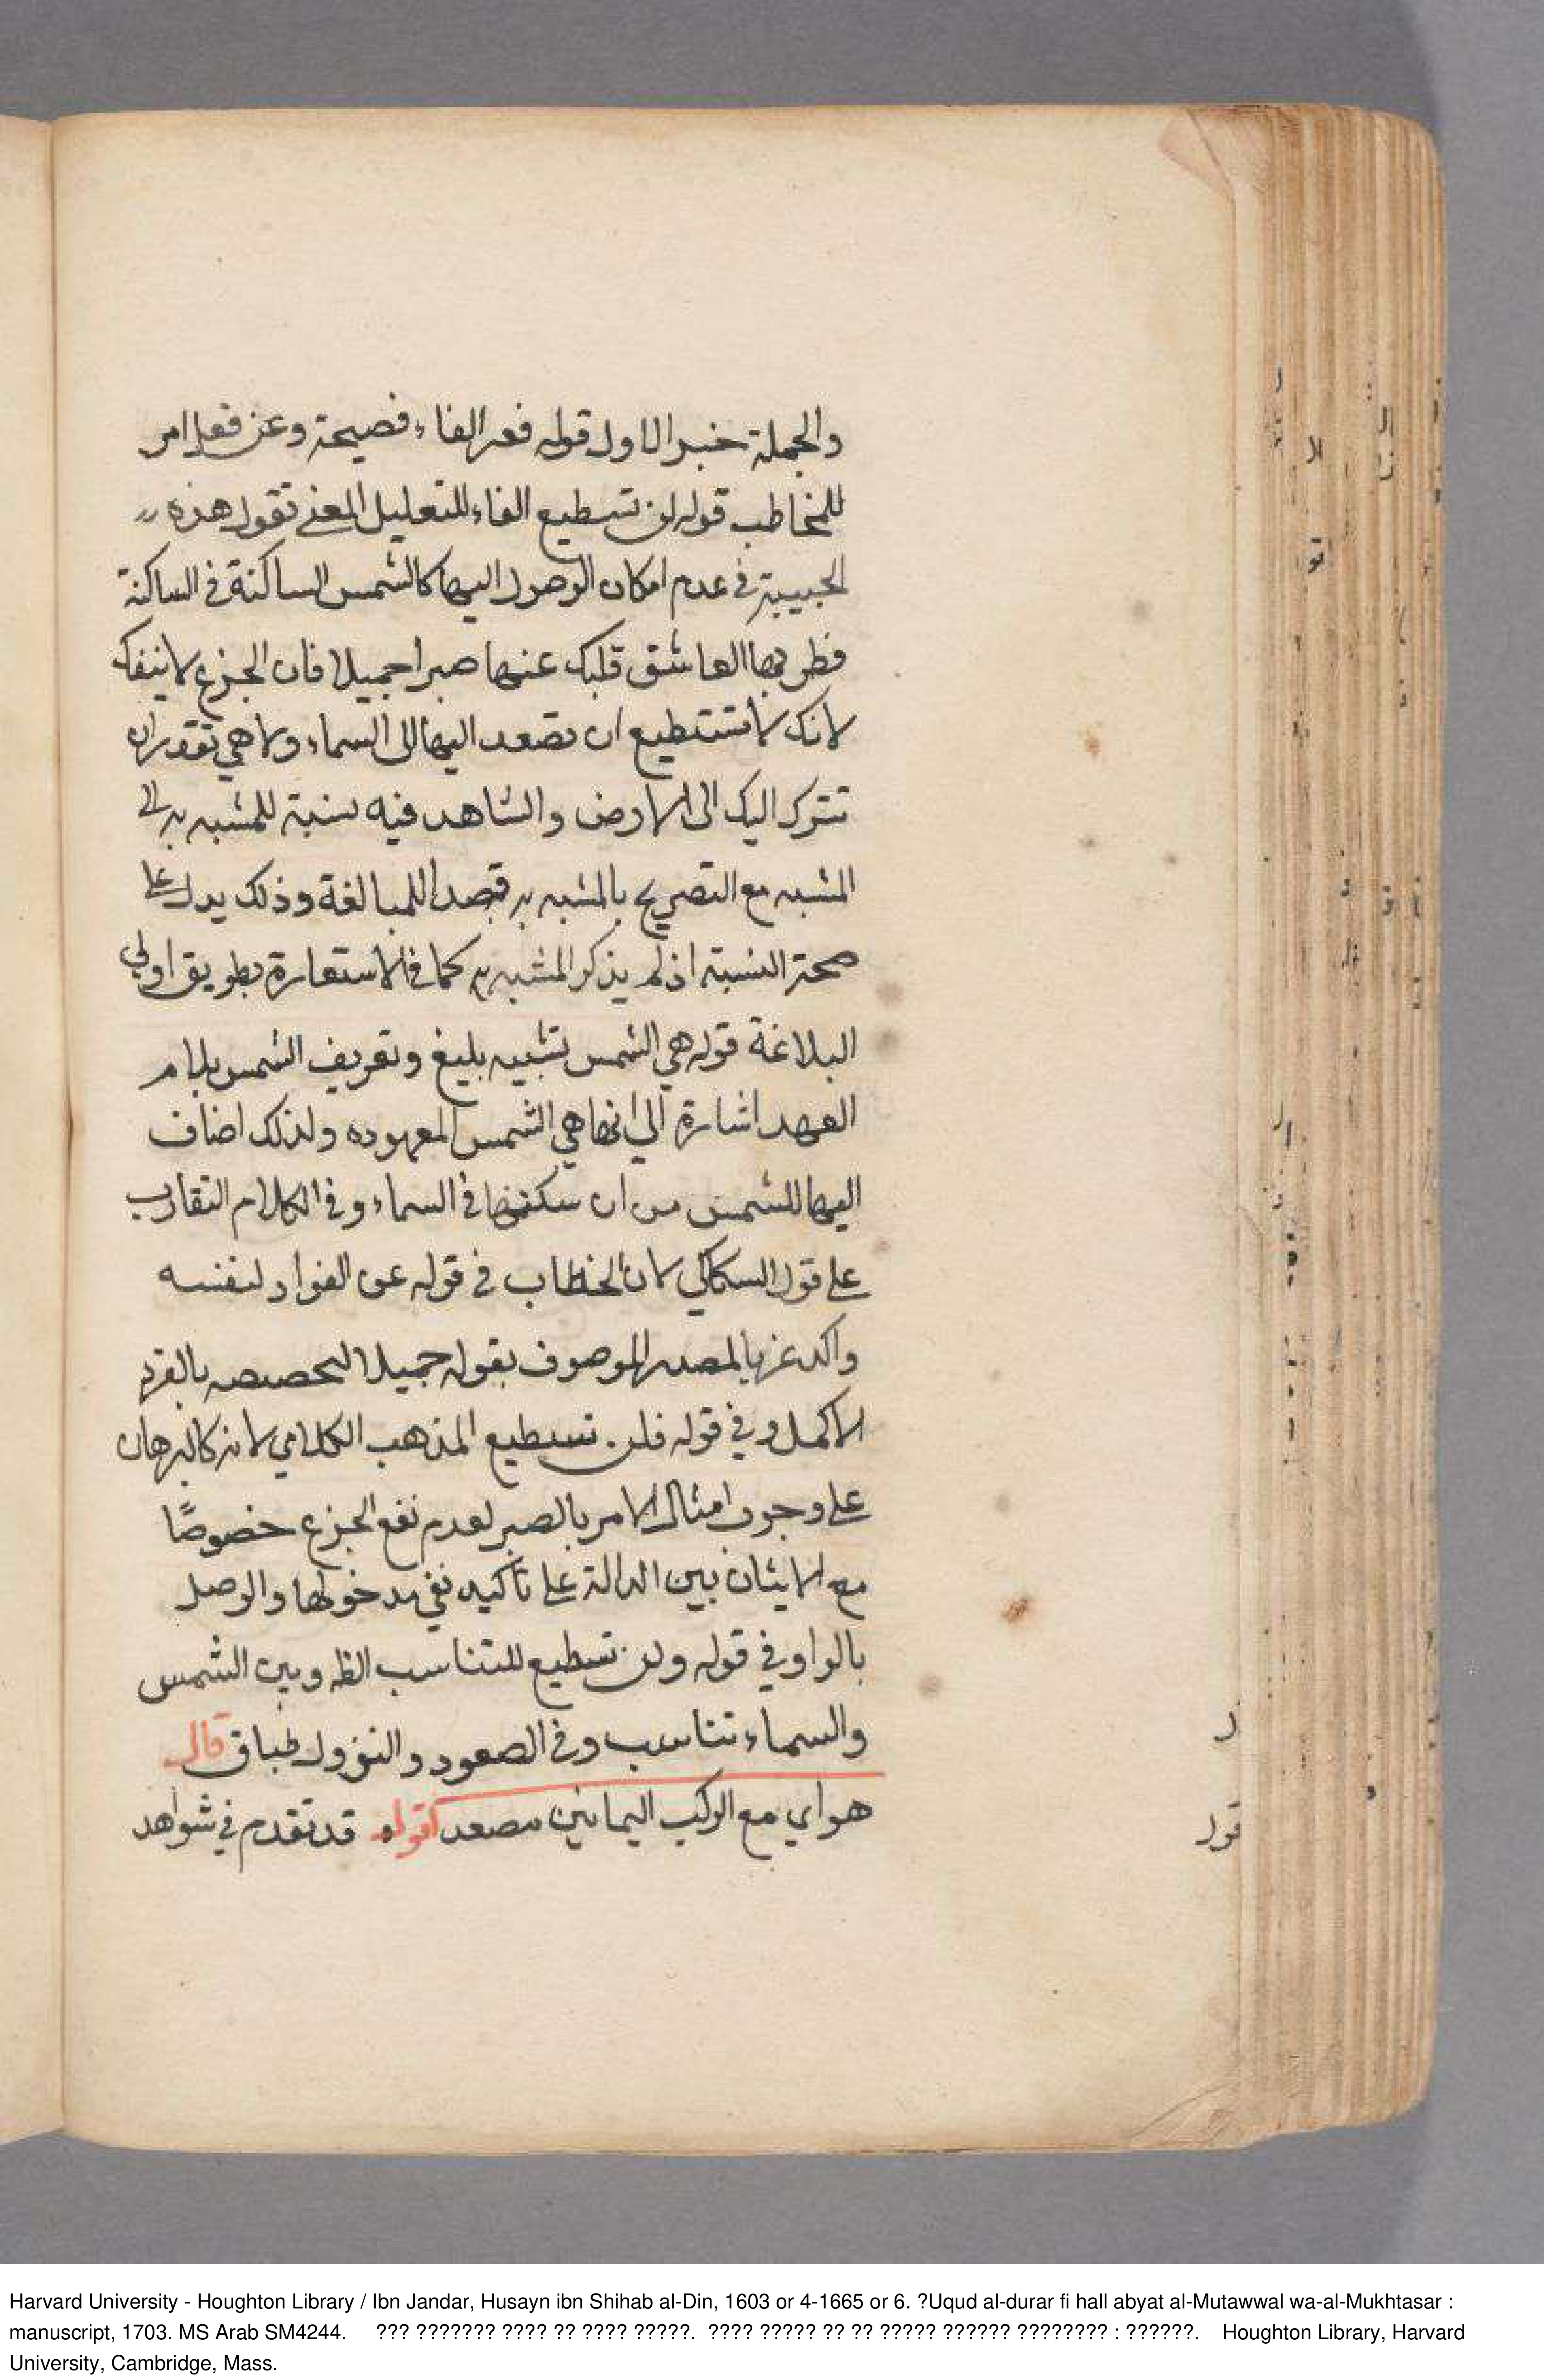 والجملة خبر الاول قوله فعز الفاء فصيحة وعز فعل امر
للمخاطب قوله لن تسطيع الفاء للتعليل المعنى تقول هذه
الحبيبة في عدم امكان الوصول اليها كالشمس الساكنة في الساكنة
العاشق قلبك عنها صبرا جميلا فان الجزع لا ينفك
لانك لا تستطيع ان تصعد اليها الى السماء ولا هي تقدر ان
تترك اليك الى الارض والشاهد فيه نسبة للمشبه به الى
المشبه مع التصريح بالمشبه به قصدا للمبالغة وذلك يدل على
صحة النسبة اذ لم يذكر المشبه به كما في الاستعارة بطريق اولي
البلاغة قوله هي الشمس تشبيه بليغ وتعريف الشمس بلام
العهد اشارة الي انها هي الشمس المعهوده ولذلك اضاف
اليها للشمس من ان سكنها في السماء وفي الكلام التقارب
على قول السكاكي لان الخطاب في قوله عن الفواد لنفسه
واكد عز بالمصدر الموصوف بقوله جميلا لتخصيصه بالفرد
الاكمل وفي قوله فلن تسطيع المذهب الكلامي لانه كالبرهان
على وجوب امثال الامر بالصبر لعدم نفع الجزع خصوصًا
مع الايثان بين الدالة على تاكيد نفي مدخولها والوصل
بالواو في قوله ولن تسطيع للتناسب الظ وبين الشمس
والسماء تناسب وفي الصعود والنزول طباق قال
هواي مع الركب اليمانين مصعد اقول قد تقدم في شواهد
قول
Harvard University - Houghton Library / Ibn Jandar, Husayn ibn Shihab al-Din, 1603 or 4-1665 or 6. ?Uqud al-durar fi hall abyat al-Mutawwal wa-al-Mukhtasar :
manuscript, 1703. MS Arab SM4244. ??? ??????? ???? ?? ???? ?????. ???? ????? ?? ?? ????? ?????? ???????? : ??????. Houghton Library, Harvard
University, Cambridge, Mass.